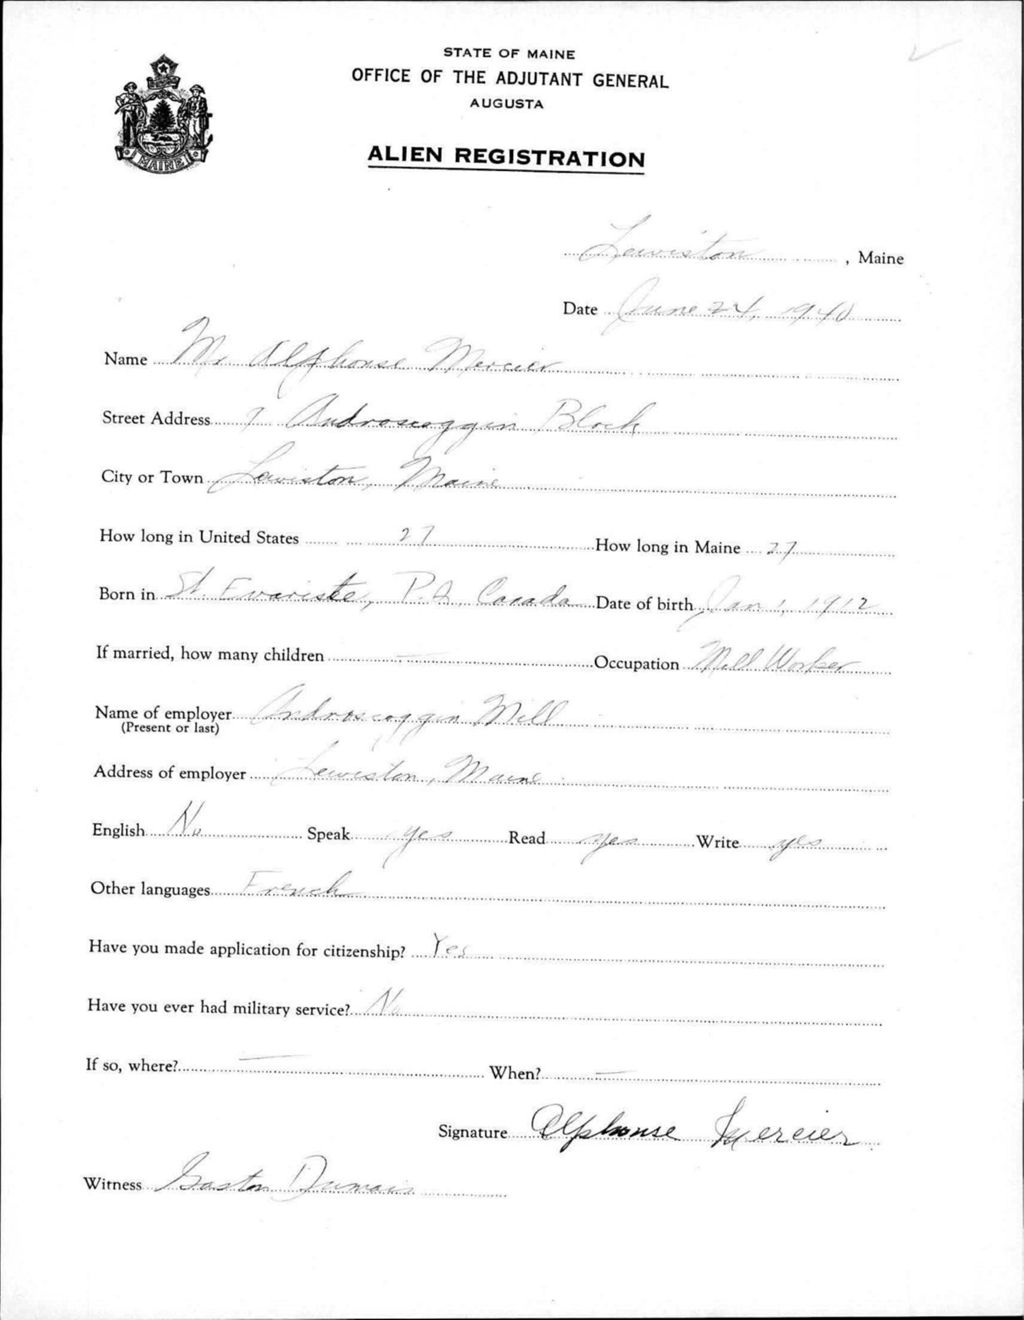 STATE OF MAINE
OFFICE OF THE ADJUTANT GENERAL
AUGUSTA
ALIEN REGISTRATION
MAINE
Lewiston, Maine
Date June 24, 1940
Name Mr Alphonse Mercier
Street Address 7 Androscoggin Block
City or Town Lewiston, Maine
How long in United States 27 How long in Maine 27
Born in St. Evariste, P.Q, Canada Date of birth Jan 1, 1912
If married, how many children — Occupation Mill Worker
Name of employer Androscoggin Mill
(Present or last)
Address of employer Lewiston, Maine
English No Speak yes Read yes Write yes
Other languages French
Have you made application for citizenship? Yes
Have you ever had military service? No
If so, where? — When? —
Signature Alphonse Mercier
Witness Gaston Dumais